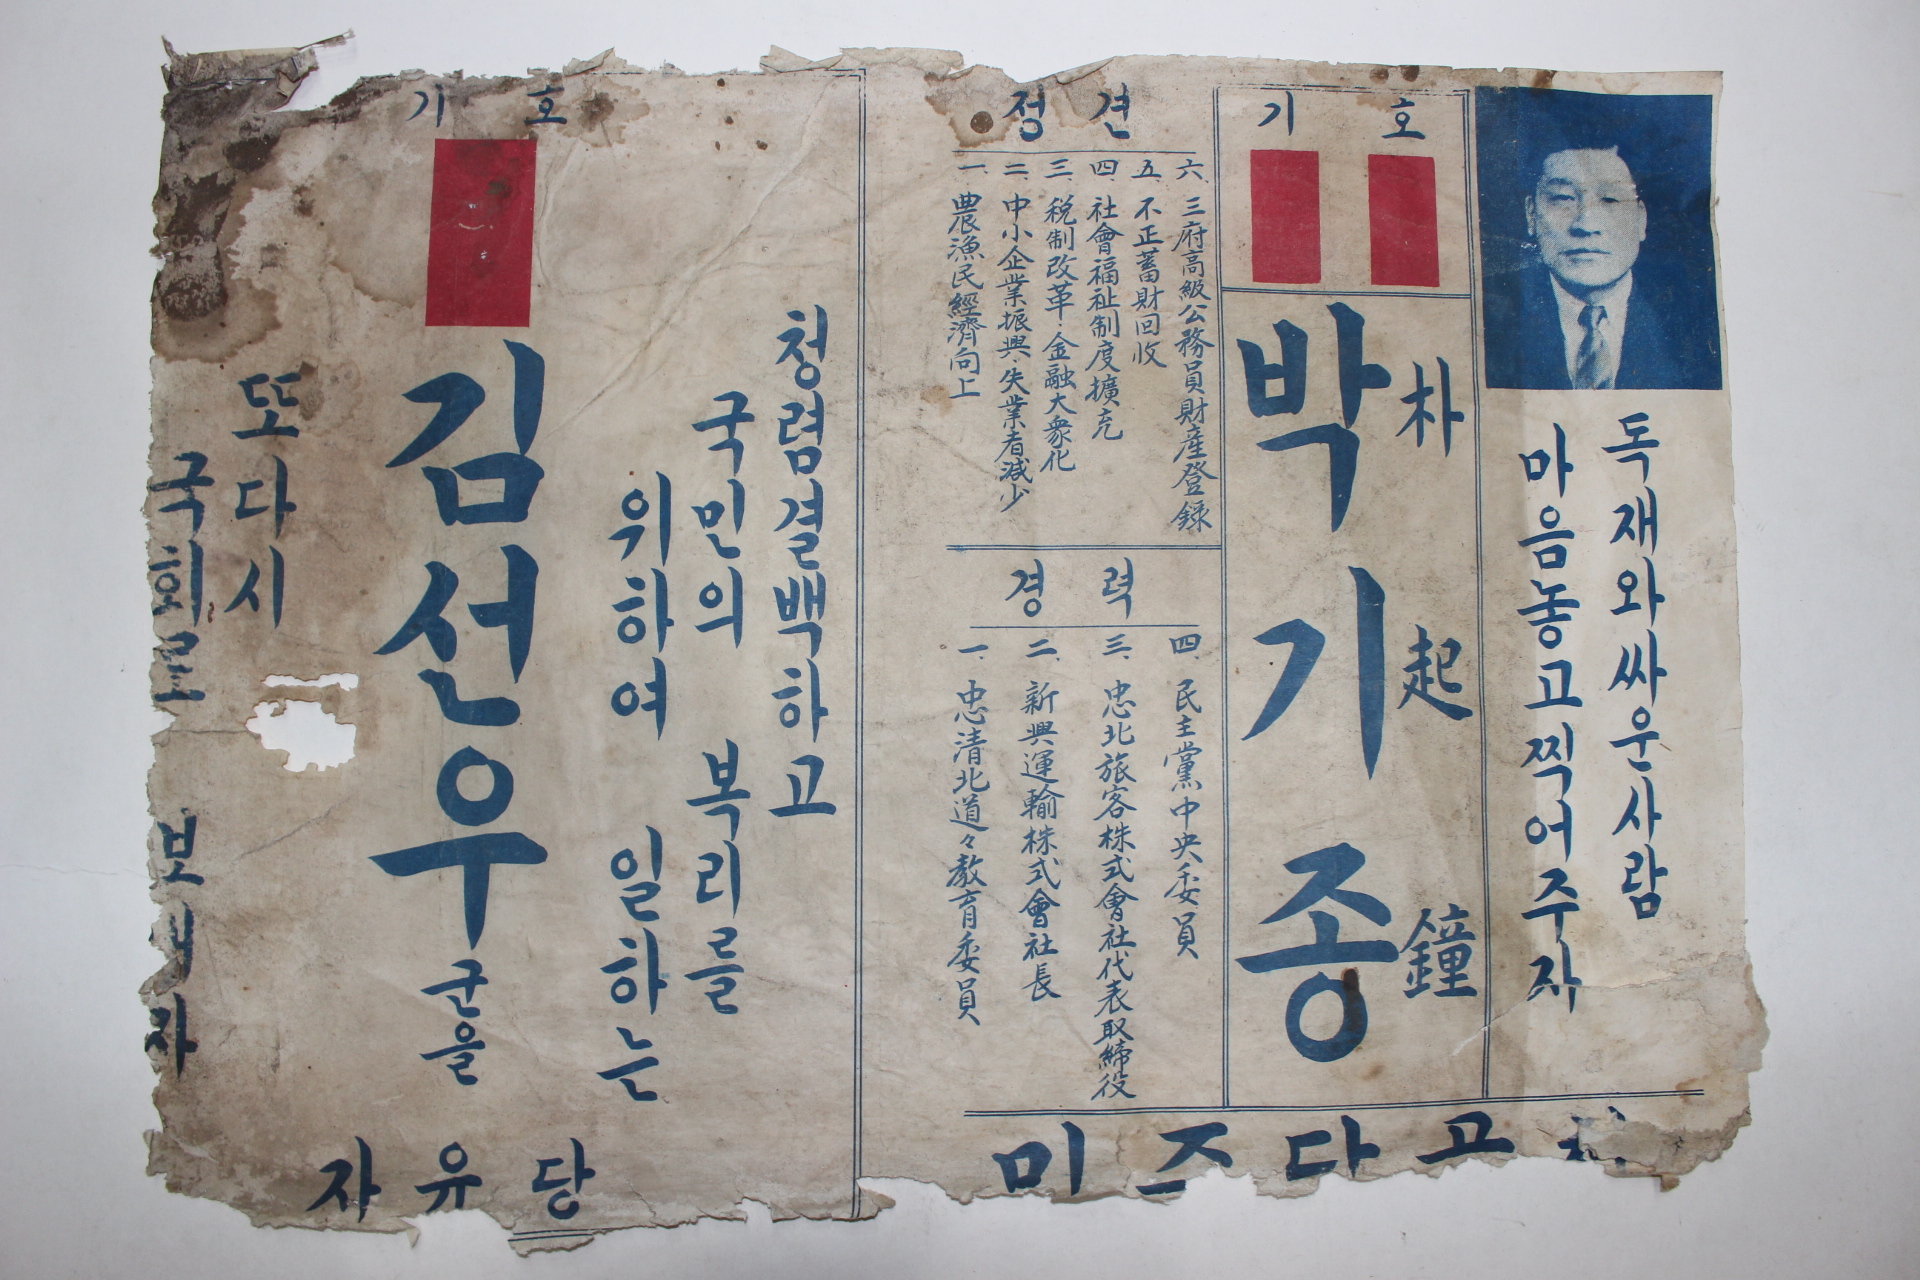 독재와싸운사람
마음놓고찍어주자
기 호
朴起鐘
박기종
정 견
一. 農漁民經濟向上
二. 中小企業振興·失業者減少
三. 税制改革·金融大衆化
四. 社會福祉制度擴充
五. 不正蓄財回收
六. 三府高級公務員財産登錄
경 력
一. 忠清北道々敎育委員
二. 新興運輸株式會社長
三. 忠北旅客株式會社代表取締役
四. 民主黨中央委員
민주당
청렴결백하고
국민의 복리를
위하여 일하는
기 호
김선우군을
또다시
국회로 보내자
자유당